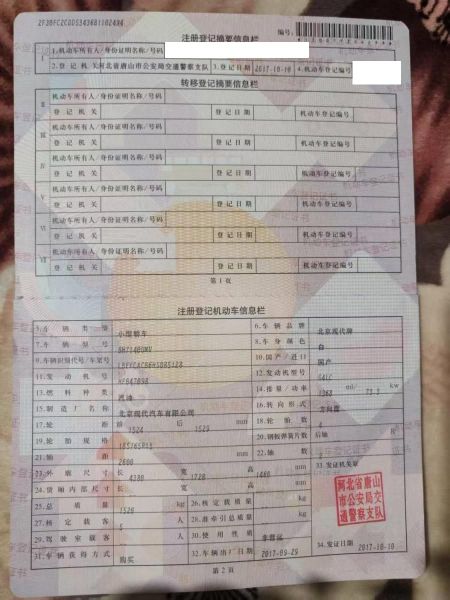 2F30FC2C0DS3436811024X4
注册登记摘要信息栏
编号:
I 1.机动车所有人/身份证明名称/号码
2.登记机关 河北省唐山市公安局交通警察支队 3.登记日期 2017-10-10 4.机动车登记编号
转移登记摘要信息栏
II 机动车所有人/身份证明名称/号码
登记机关 登记日期 机动车登记编号
III 机动车所有人/身份证明名称/号码
登记机关 登记日期 机动车登记编号
IV 机动车所有人/身份证明名称/号码
登记机关 登记日期 机动车登记编号
V 机动车所有人/身份证明名称/号码
登记机关 登记日期 机动车登记编号
VI 机动车所有人/身份证明名称/号码
登记机关 登记日期 机动车登记编号
VII 机动车所有人/身份证明名称/号码
登记机关 登记日期 机动车登记编号
第1页
注册登记机动车信息栏
5.车辆类型 小型轿车 6.车辆品牌 北京现代牌
7.车辆型号 8.车身颜色 白
9.车辆识别代号/车架号 10.国产/进口 国产
11.发动机号 12.发动机型号 G4LC
13.燃料种类 汽油 14.排量/功率 1368 ml/ 73.3 kw
15.制造厂名称 北京现代汽车有限公司 16.转向形式 方向盘
17.轮距 前 1524 后 1529 mm 18.轮胎数 4
19.轮胎规格 185/65R15 20.钢板弹簧片数 后轴
21.轴距 2600 mm 22.轴数 2
23.外廓尺寸 长 4380 宽 1728 高 1460 mm 33.发证机关章
24.货厢内部尺寸 长 宽 高 mm
25.总质量 kg 26.核定载质量 kg
27.核定载客 5 人 28.准牵引总质量 kg
29.驾驶室载客 人 30.使用性质 非营运
31.车辆获得方式 购买 32.车辆出厂日期 2017-09-29 34.发证日期 2017-10-10
河北省唐山
市公安局交
通警察支队
第2页